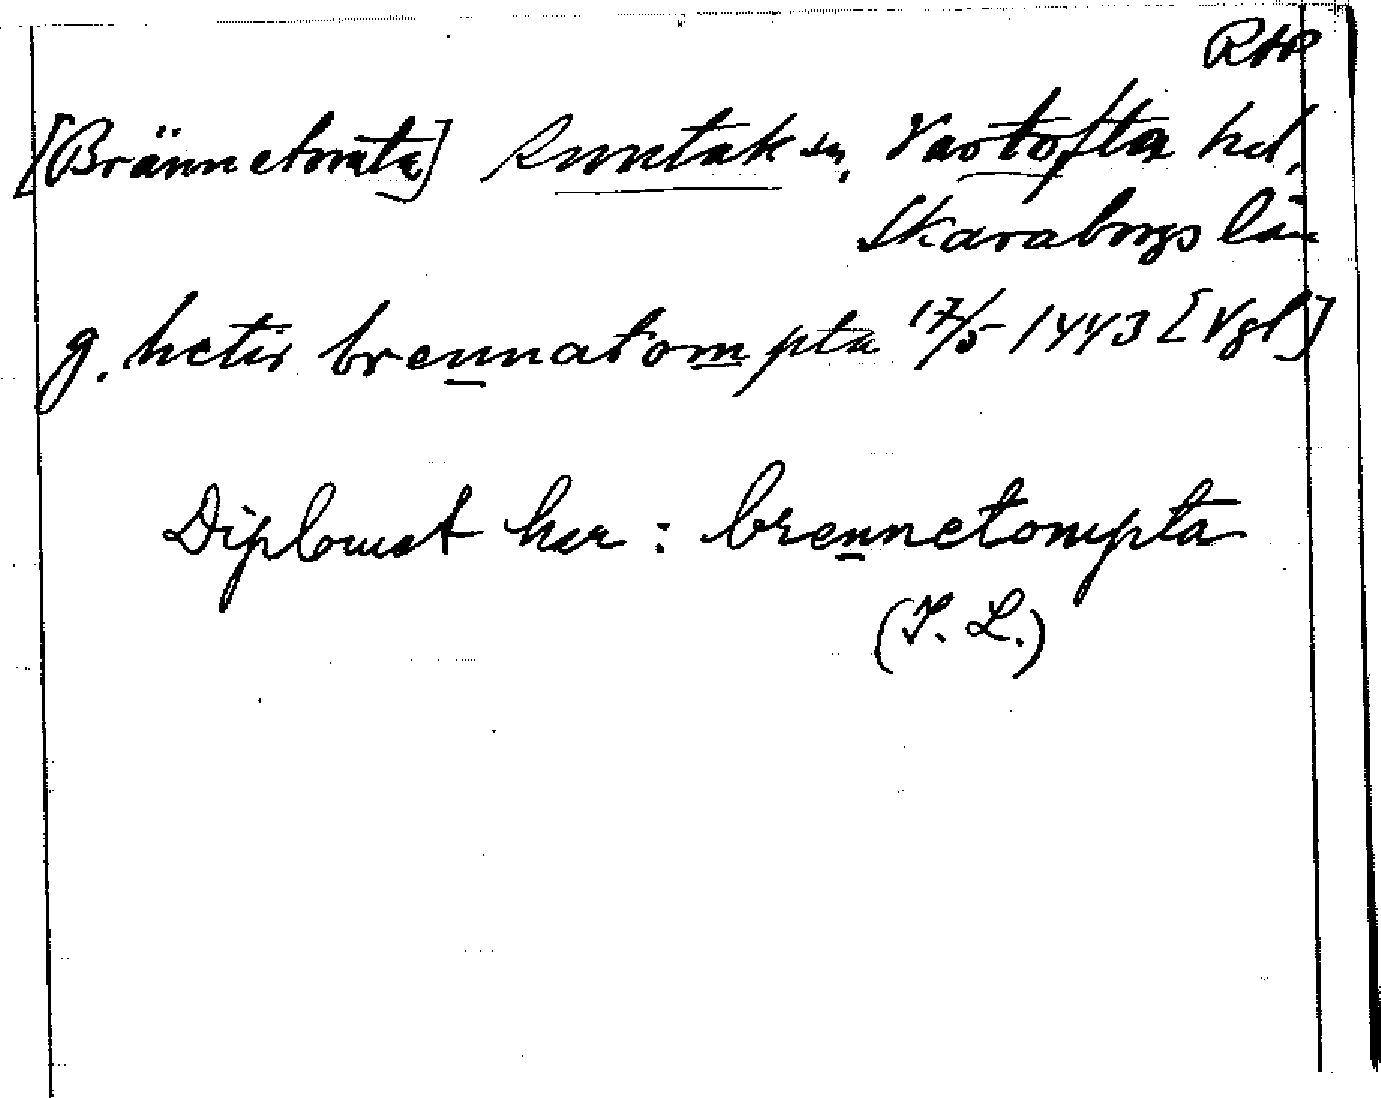 RAP
[Brännetomta] Suntak sn, Vartofta hd,
Skaraborgs län
g. hetir brennatompta 17/5 1443 [Vgl]
Diplomet har: brennetompta
(I. L.)